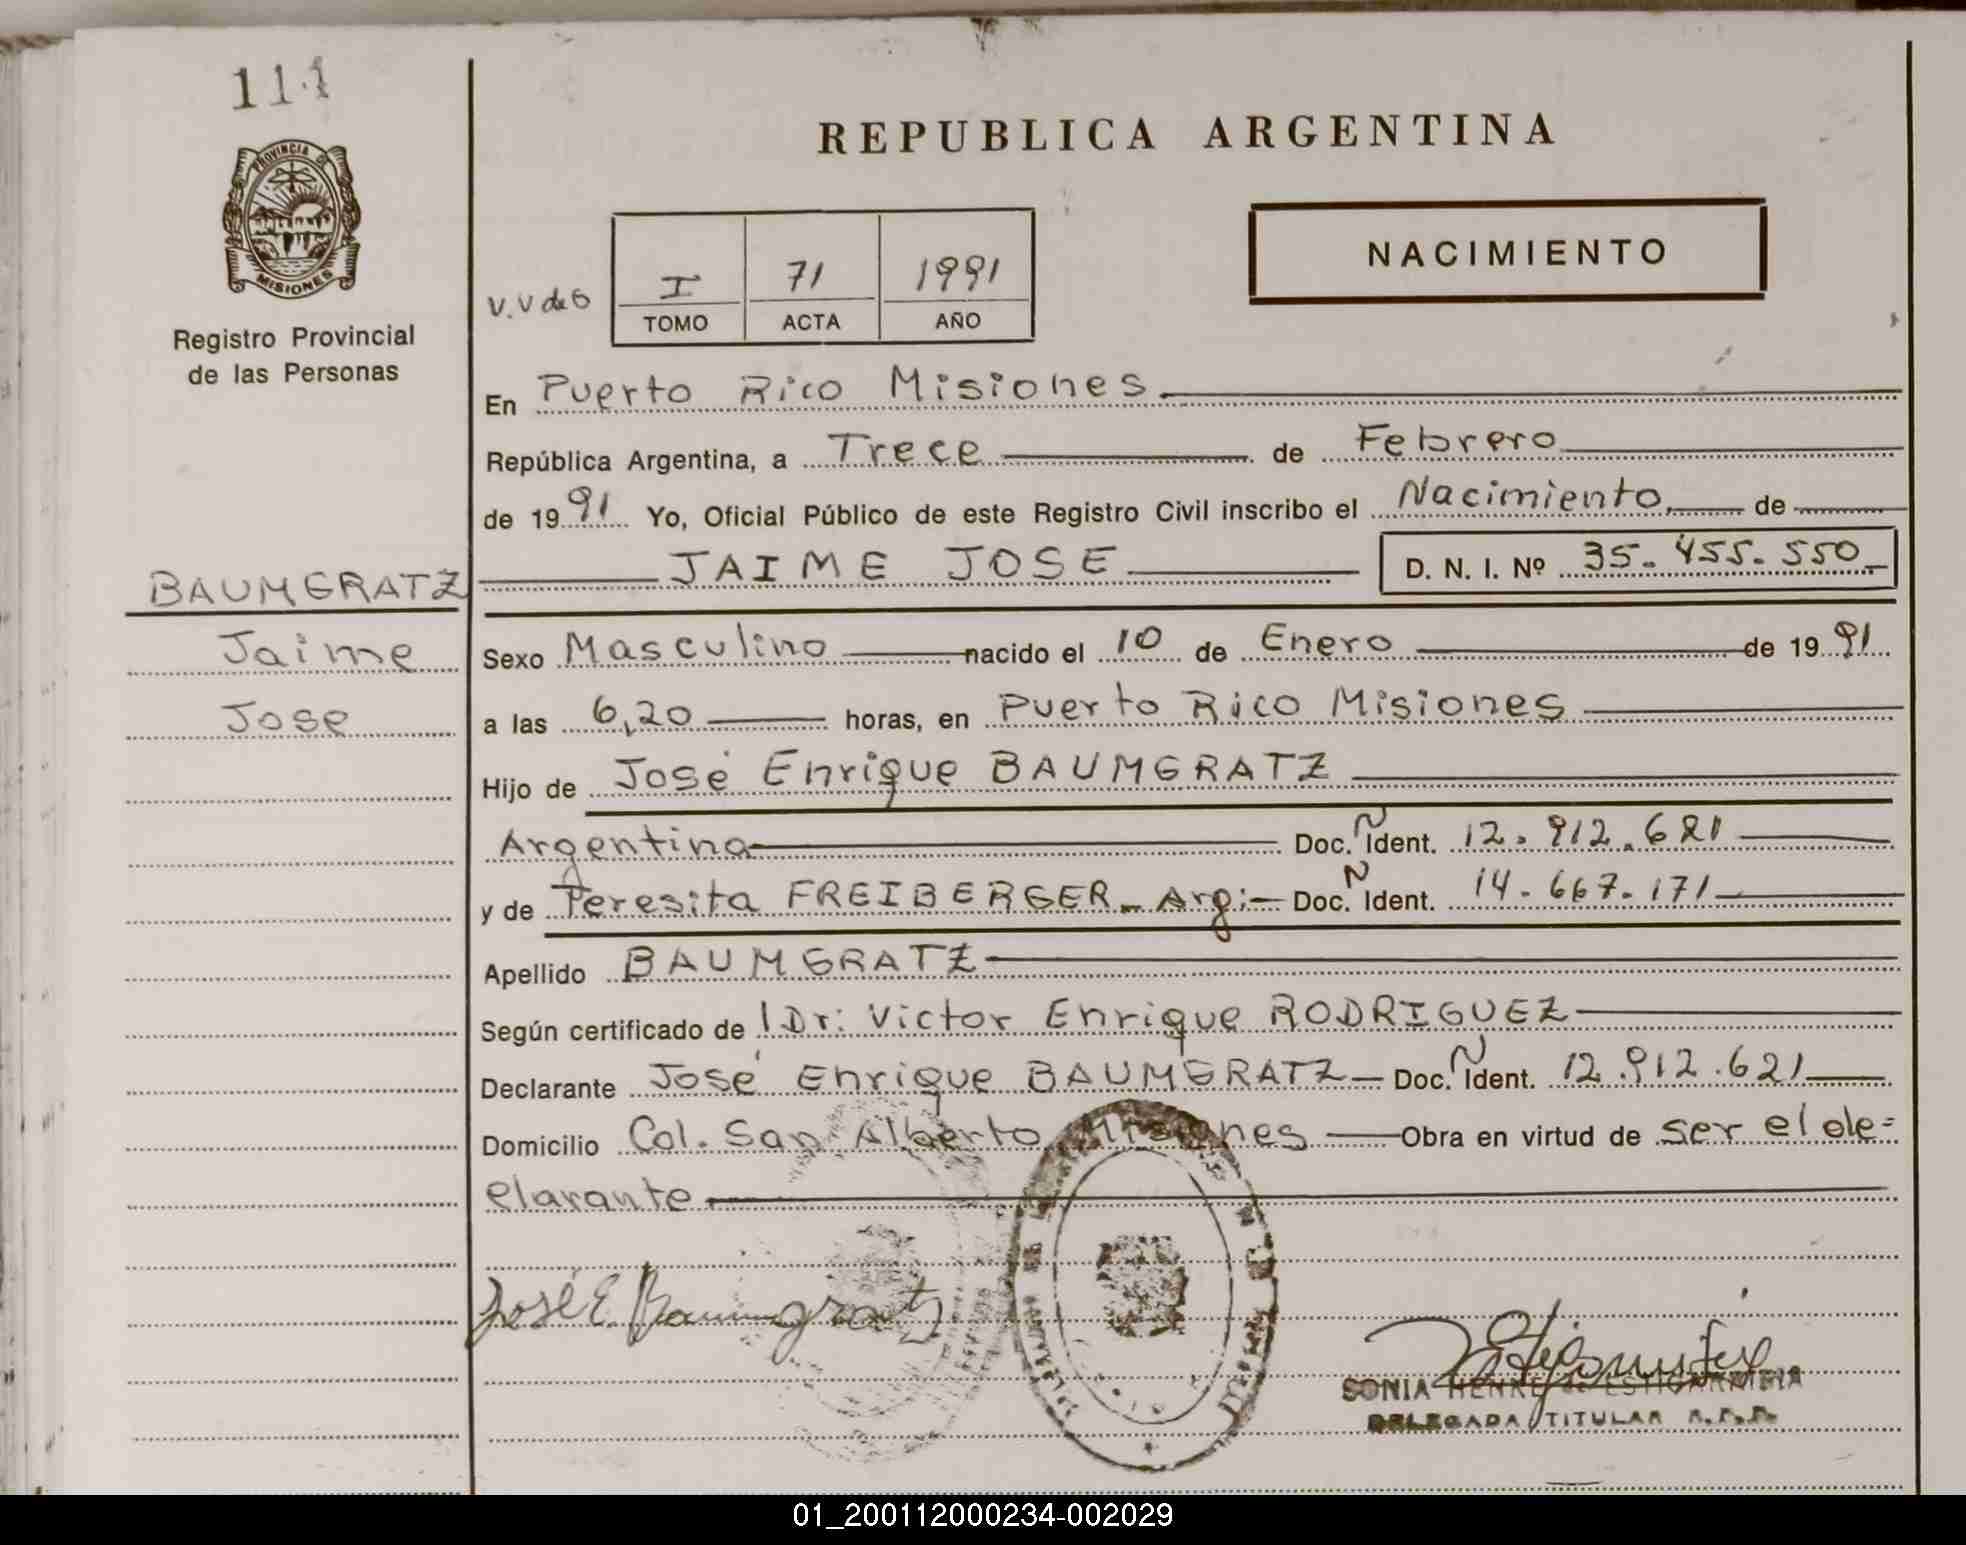 111
PROVINCIA DE
MISIONES
Registro Provincial
de las Personas
REPUBLICA ARGENTINA
NACIMIENTO
V.V de G
I 71 1991
TOMO ACTA AÑO
En Puerto Rico Misiones
República Argentina, a Trece de Febrero
de 1991 Yo, Oficial Público de este Registro Civil inscribo el Nacimiento, de
JAIME JOSE D. N. I. Nº 35.455.550
BAUMGRATZ
Jaime
Jose
Sexo Masculino nacido el 10 de Enero de 1991
a las 6,20 horas, en Puerto Rico Misiones
Hijo de José Enrique BAUMGRATZ
Argentina Doc. N Ident. 12.912.621
y de Teresita FREIBERGER - Arg: Doc. N Ident. 14.667.171
Apellido BAUMGRATZ
Según certificado de l Dr: Victor Enrique RODRIGUEZ
Declarante José Enrique BAUMGRATZ Doc. N Ident. 12.912.621
Domicilio Col. San Alberto Misiones Obra en virtud de ser el de=
clarante
José E. Baumgratz
SONIA HENKE de ESTIGARRIBIA
DELEGADA TITULAR R.P.P.
01_200112000234-002029